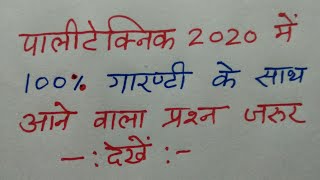 पालीटेक्निक 2020 में
100% गारण्टी के साथ
आने वाला प्रश्न जरुर
-: देखें :-